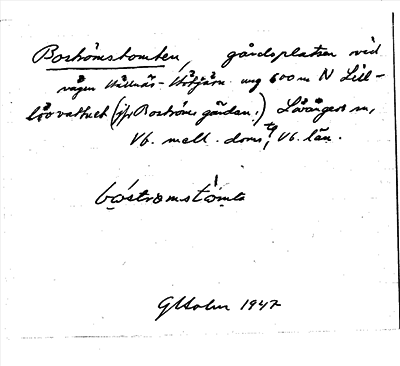 Boströmstomten, gårdsplatsen vid
vägen Hällnäs - ung 600 m N Lill-
löövattnet (jfr Boströms gården.) Lövångers sn,
Vb. mell. doms. tg, Vb. län.
bòstrœmstòmta
G Holm 1947